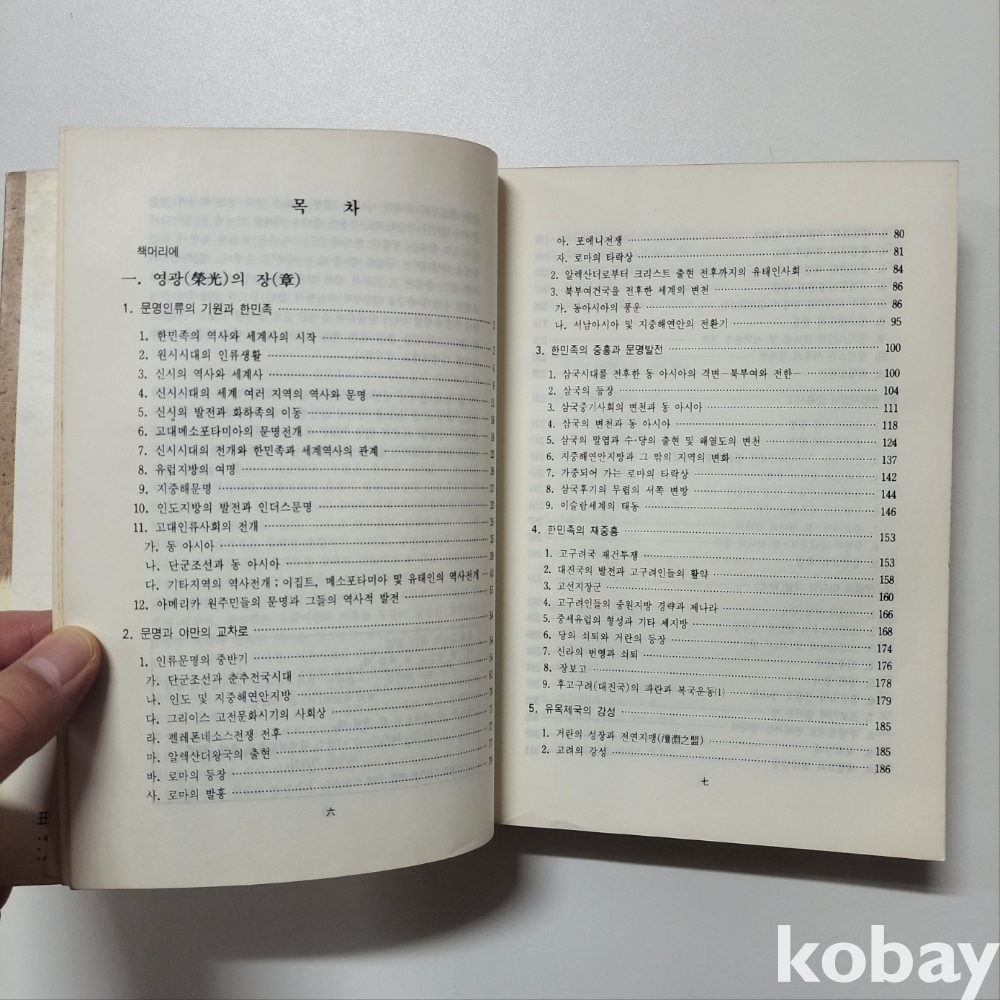 목 차
책머리에
一. 영광(榮光)의 장(章)
1. 문명인류의 기원과 한민족 3
1. 한민족의 역사와 세계사의 시작 3
2. 원시시대의 인류생활
3. 신시의 역사와 세계사
4. 신시시대의 세계 여러 지역의 역사와 문명
5. 신시의 발전과 화하족의 이동
6. 고대메소포타미아의 문명전개
7. 신시시대의 전개와 한민족과 세계역사의 관계
8. 유럽지방의 여명
9. 지중해문명
10. 인도지방의 발전과 인더스문명
11. 고대인류사회의 전개
가. 동 아시아
나. 단군조선과 동 아시아
다. 기타지역의 역사전개 ; 이집트, 메소포타미아 및 유태인의 역사전개
12. 아메리카 원주민들의 문명과 그들의 역사적 발전
2. 문명과 야만의 교차로 54
1. 인류문명의 중반기 54
가. 단군조선과 춘추전국시대
나. 인도 및 지중해연안지방
다. 그리이스 고전문화시기의 사회상
라. 펠레폰네소스전쟁 전후
마. 알렉산더왕국의 출현
바. 로마의 등장
사. 로마의 발흥
六
아. 포에니전쟁 80
자. 로마의 타락상 81
2. 알렉산더로부터 크리스트 출현 전후까지의 유태인사회 84
3. 북부여건국을 전후한 세계의 변천 86
가. 동아시아의 풍운 86
나. 서남아시아 및 지중해연안의 전환기 95
3. 한민족의 중흥과 문명발전 100
1. 삼국시대를 전후한 동 아시아의 격변—북부여와 전한— 100
2. 삼국의 등장 104
3. 삼국중기사회의 변천과 동 아시아 111
4. 삼국의 변천과 동 아시아 118
5. 삼국의 말엽과 수·당의 출현 및 왜열도의 변천 124
6. 지중해연안지방과 그 밖의 지역의 변화 137
7. 가중되어 가는 로마의 타락상 142
8. 삼국후기의 무렵의 서쪽 변방 144
9. 이슬람세계의 태동 146
4. 한민족의 재중흥 153
1. 고구려국 재건투쟁 153
2. 대진국의 발전과 고구려인들의 활약 158
3. 고선지장군 160
4. 고구려인들의 중원지방 경략과 제나라 166
5. 중세유럽의 형성과 기타 제지방 168
6. 당의 쇠퇴와 거란의 등장 174
7. 신라의 번영과 쇠퇴 176
8. 장보고 178
9. 후고구려(대진국)의 파란과 복국운동(1) 179
5. 유목제국의 강성 185
1. 거란의 성장과 전연지맹(澶淵之盟) 185
2. 고려의 강성 186
七
kobay